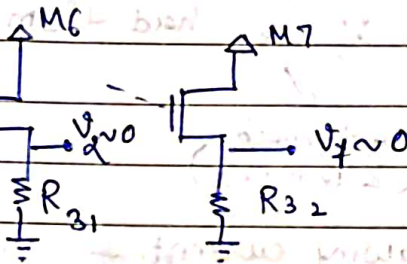 M6 M7
V_α~0 V_y~0
R_31 R_32